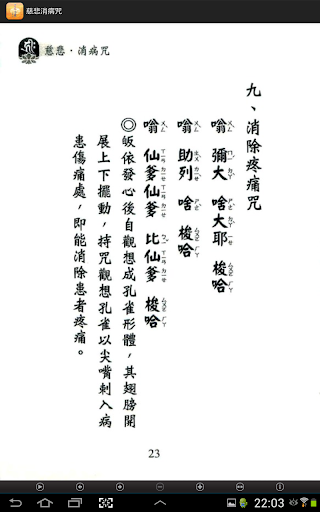 慈悲消病咒
慈悲・消病咒
九、消除疼痛咒
嗡 彌大 啥大耶 梭哈
嗡 助列 啥 梭哈
嗡 仙爹仙爹 比仙爹 梭哈
◎皈依發心後自觀想成孔雀形體，其翅膀開
展上下擺動，持咒觀想孔雀以尖嘴刺入病
患傷痛處，即能消除患者疼痛。
23
22:03